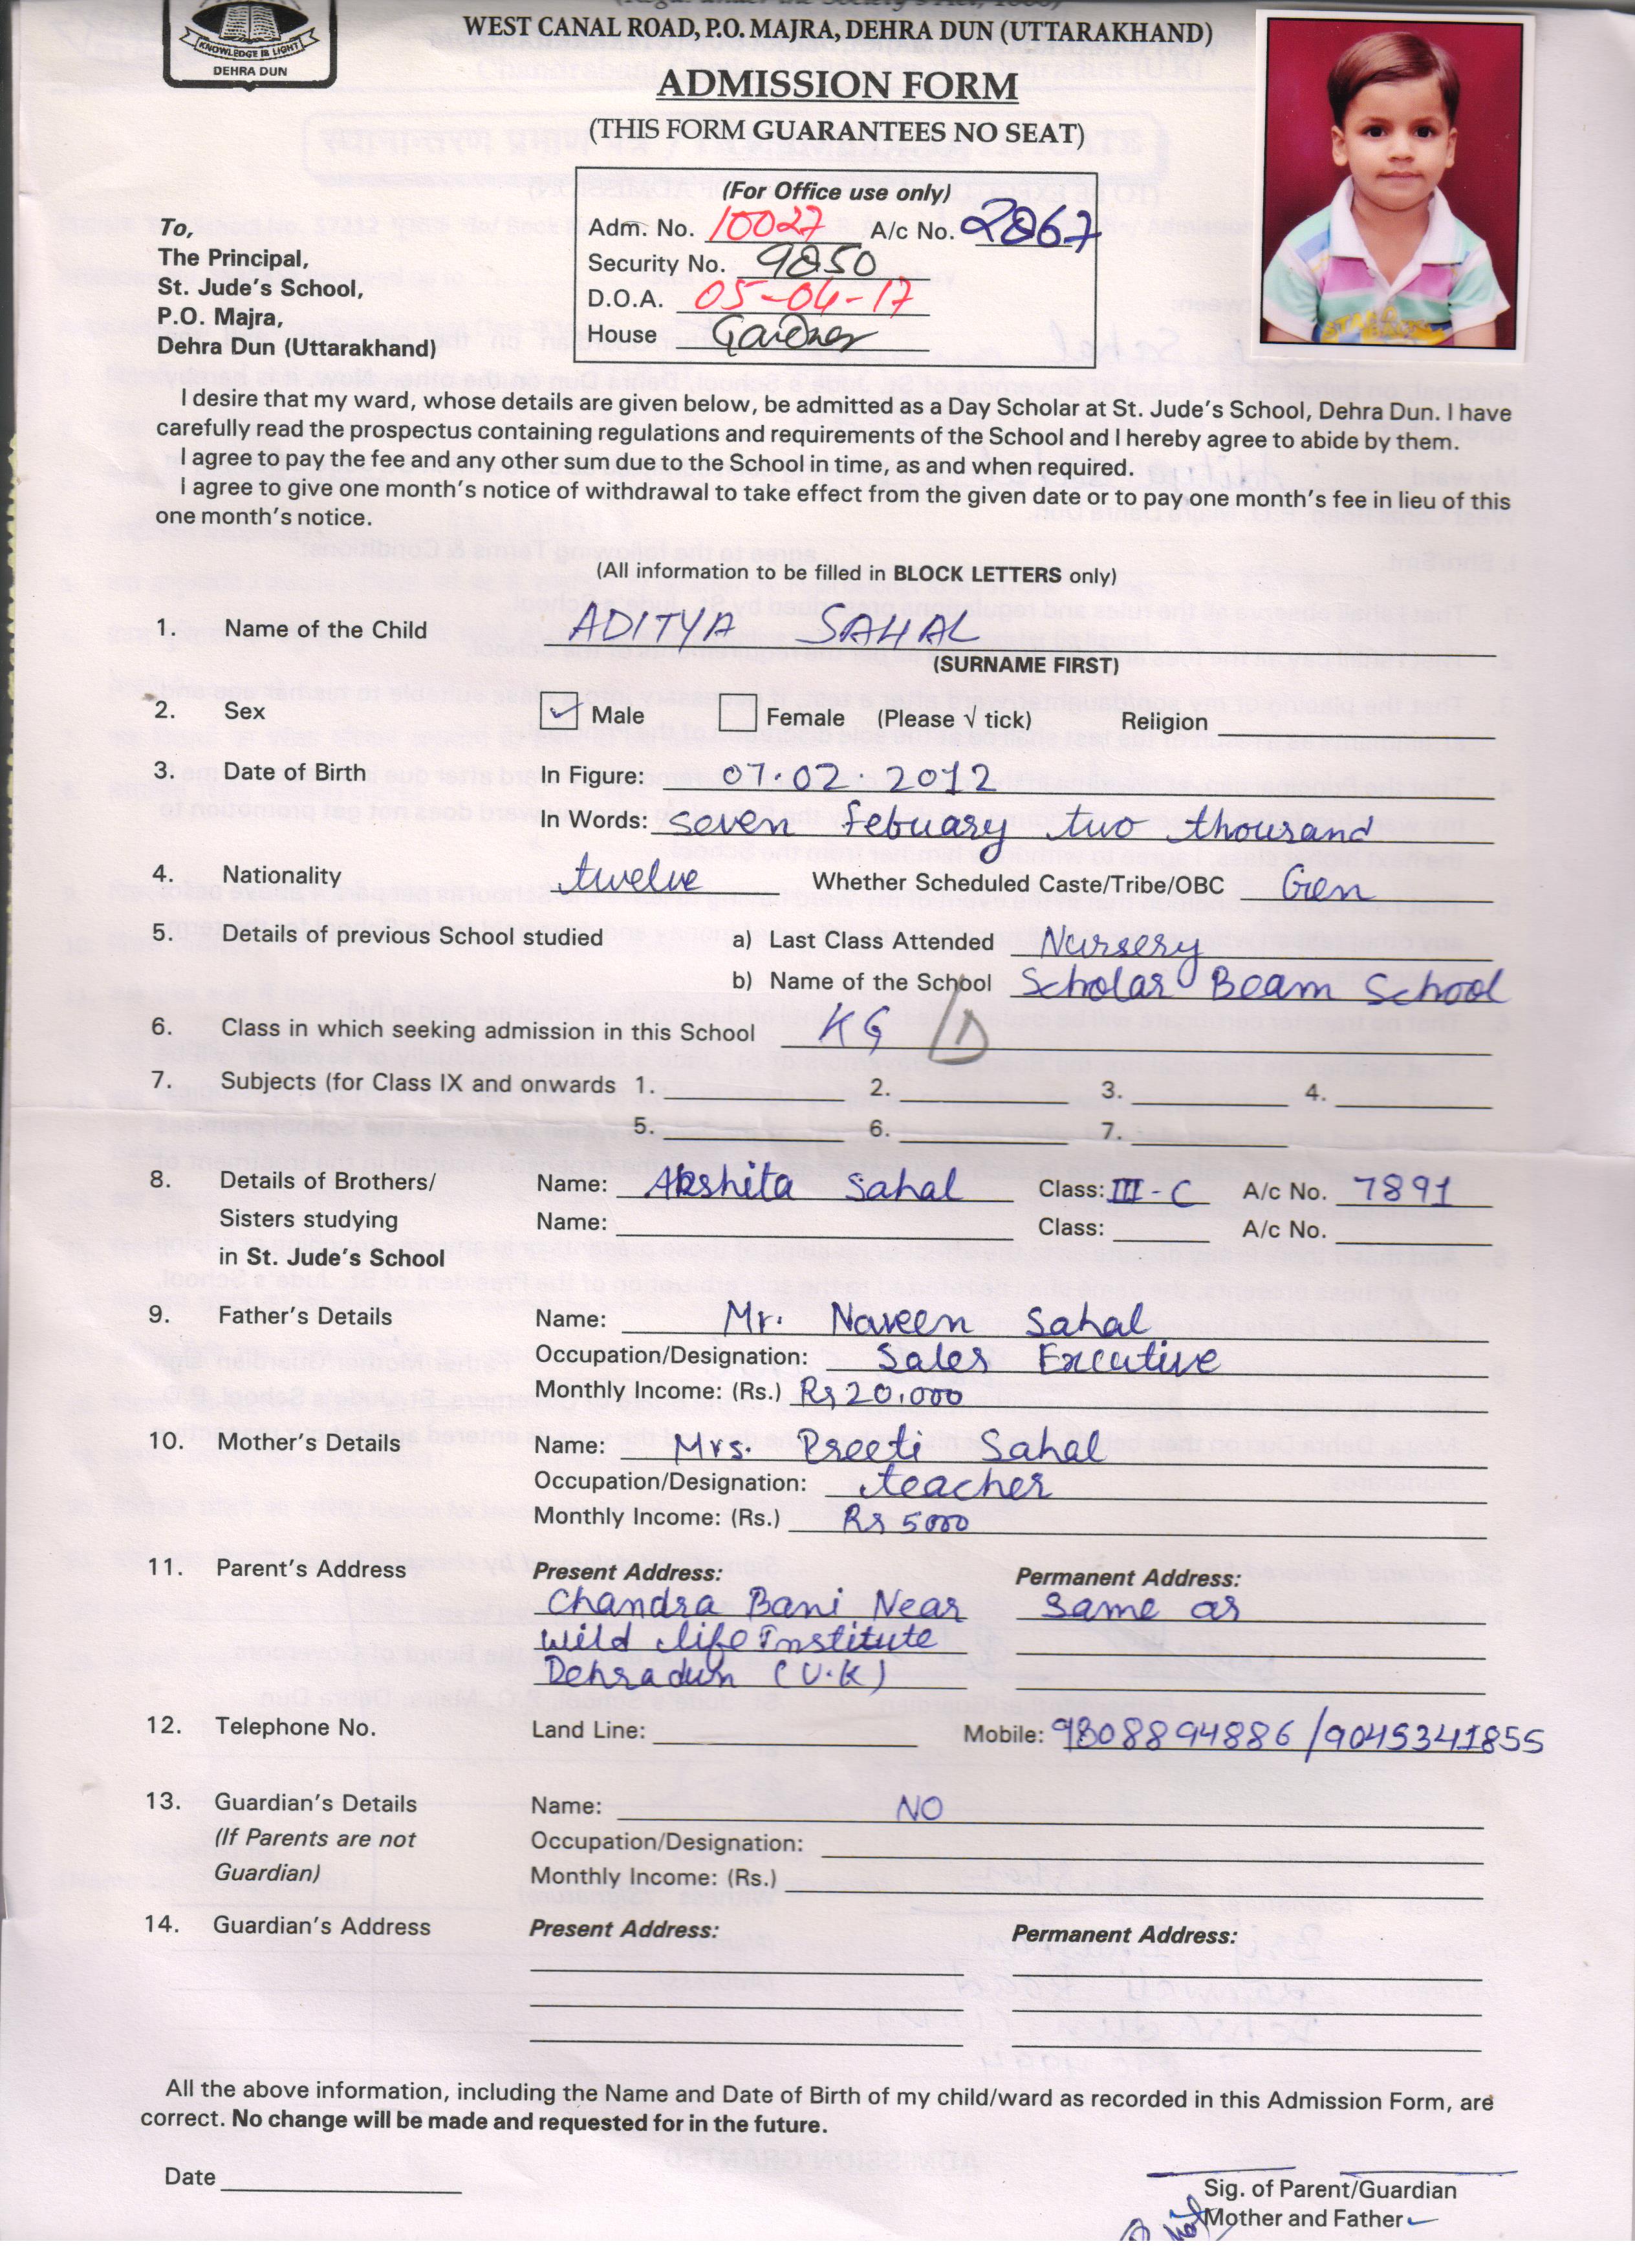 KNOWLEDGE IS LIGHT
DEHRA DUN
WEST CANAL ROAD, P.O. MAJRA, DEHRA DUN (UTTARAKHAND)
ADMISSION FORM
(THIS FORM GUARANTEES NO SEAT)
(For Office use only)
Adm. No. 10027 A/c No. 2867
Security No. 9850
D.O.A. 05-04-17
House Gardner
To,
The Principal,
St. Jude's School,
P.O. Majra,
Dehra Dun (Uttarakhand)
I desire that my ward, whose details are given below, be admitted as a Day Scholar at St. Jude's School, Dehra Dun. I have
carefully read the prospectus containing regulations and requirements of the School and I hereby agree to abide by them.
I agree to pay the fee and any other sum due to the School in time, as and when required.
I agree to give one month's notice of withdrawal to take effect from the given date or to pay one month's fee in lieu of this
one month's notice.
(All information to be filled in BLOCK LETTERS only)
1. Name of the Child ADITYA SAHAL
(SURNAME FIRST)
2. Sex Male Female (Please √ tick) Religion
3. Date of Birth In Figure: 07.02.2012
In Words: seven febuary two thousand
4. Nationality twelve Whether Scheduled Caste/Tribe/OBC Gen
5. Details of previous School studied a) Last Class Attended Nursery
b) Name of the School Scholar Beam School
6. Class in which seeking admission in this School KG D
7. Subjects (for Class IX and onwards 1. 2. 3. 4.
5. 6. 7.
8. Details of Brothers/ Name: Akshita Sahal Class: III-C A/c No. 7891
Sisters studying Name: Class: A/c No.
in St. Jude's School
9. Father's Details Name: Mr. Naveen Sahal
Occupation/Designation: Sales Excutive
Monthly Income: (Rs.) Rs 20,000
10. Mother's Details Name: Mrs. Preeti Sahal
Occupation/Designation: teacher
Monthly Income: (Rs.) Rs 5000
11. Parent's Address Present Address: Permanent Address:
Chandra Bani Near same as
Wild life Institute
Dehradun (U.K)
12. Telephone No. Land Line: Mobile: 9808894886/9045341855
13. Guardian's Details Name: NO
(If Parents are not Occupation/Designation:
Guardian) Monthly Income: (Rs.)
14. Guardian's Address Present Address: Permanent Address:
All the above information, including the Name and Date of Birth of my child/ward as recorded in this Admission Form, are
correct. No change will be made and requested for in the future.
Date
Sig. of Parent/Guardian
Mother and Father